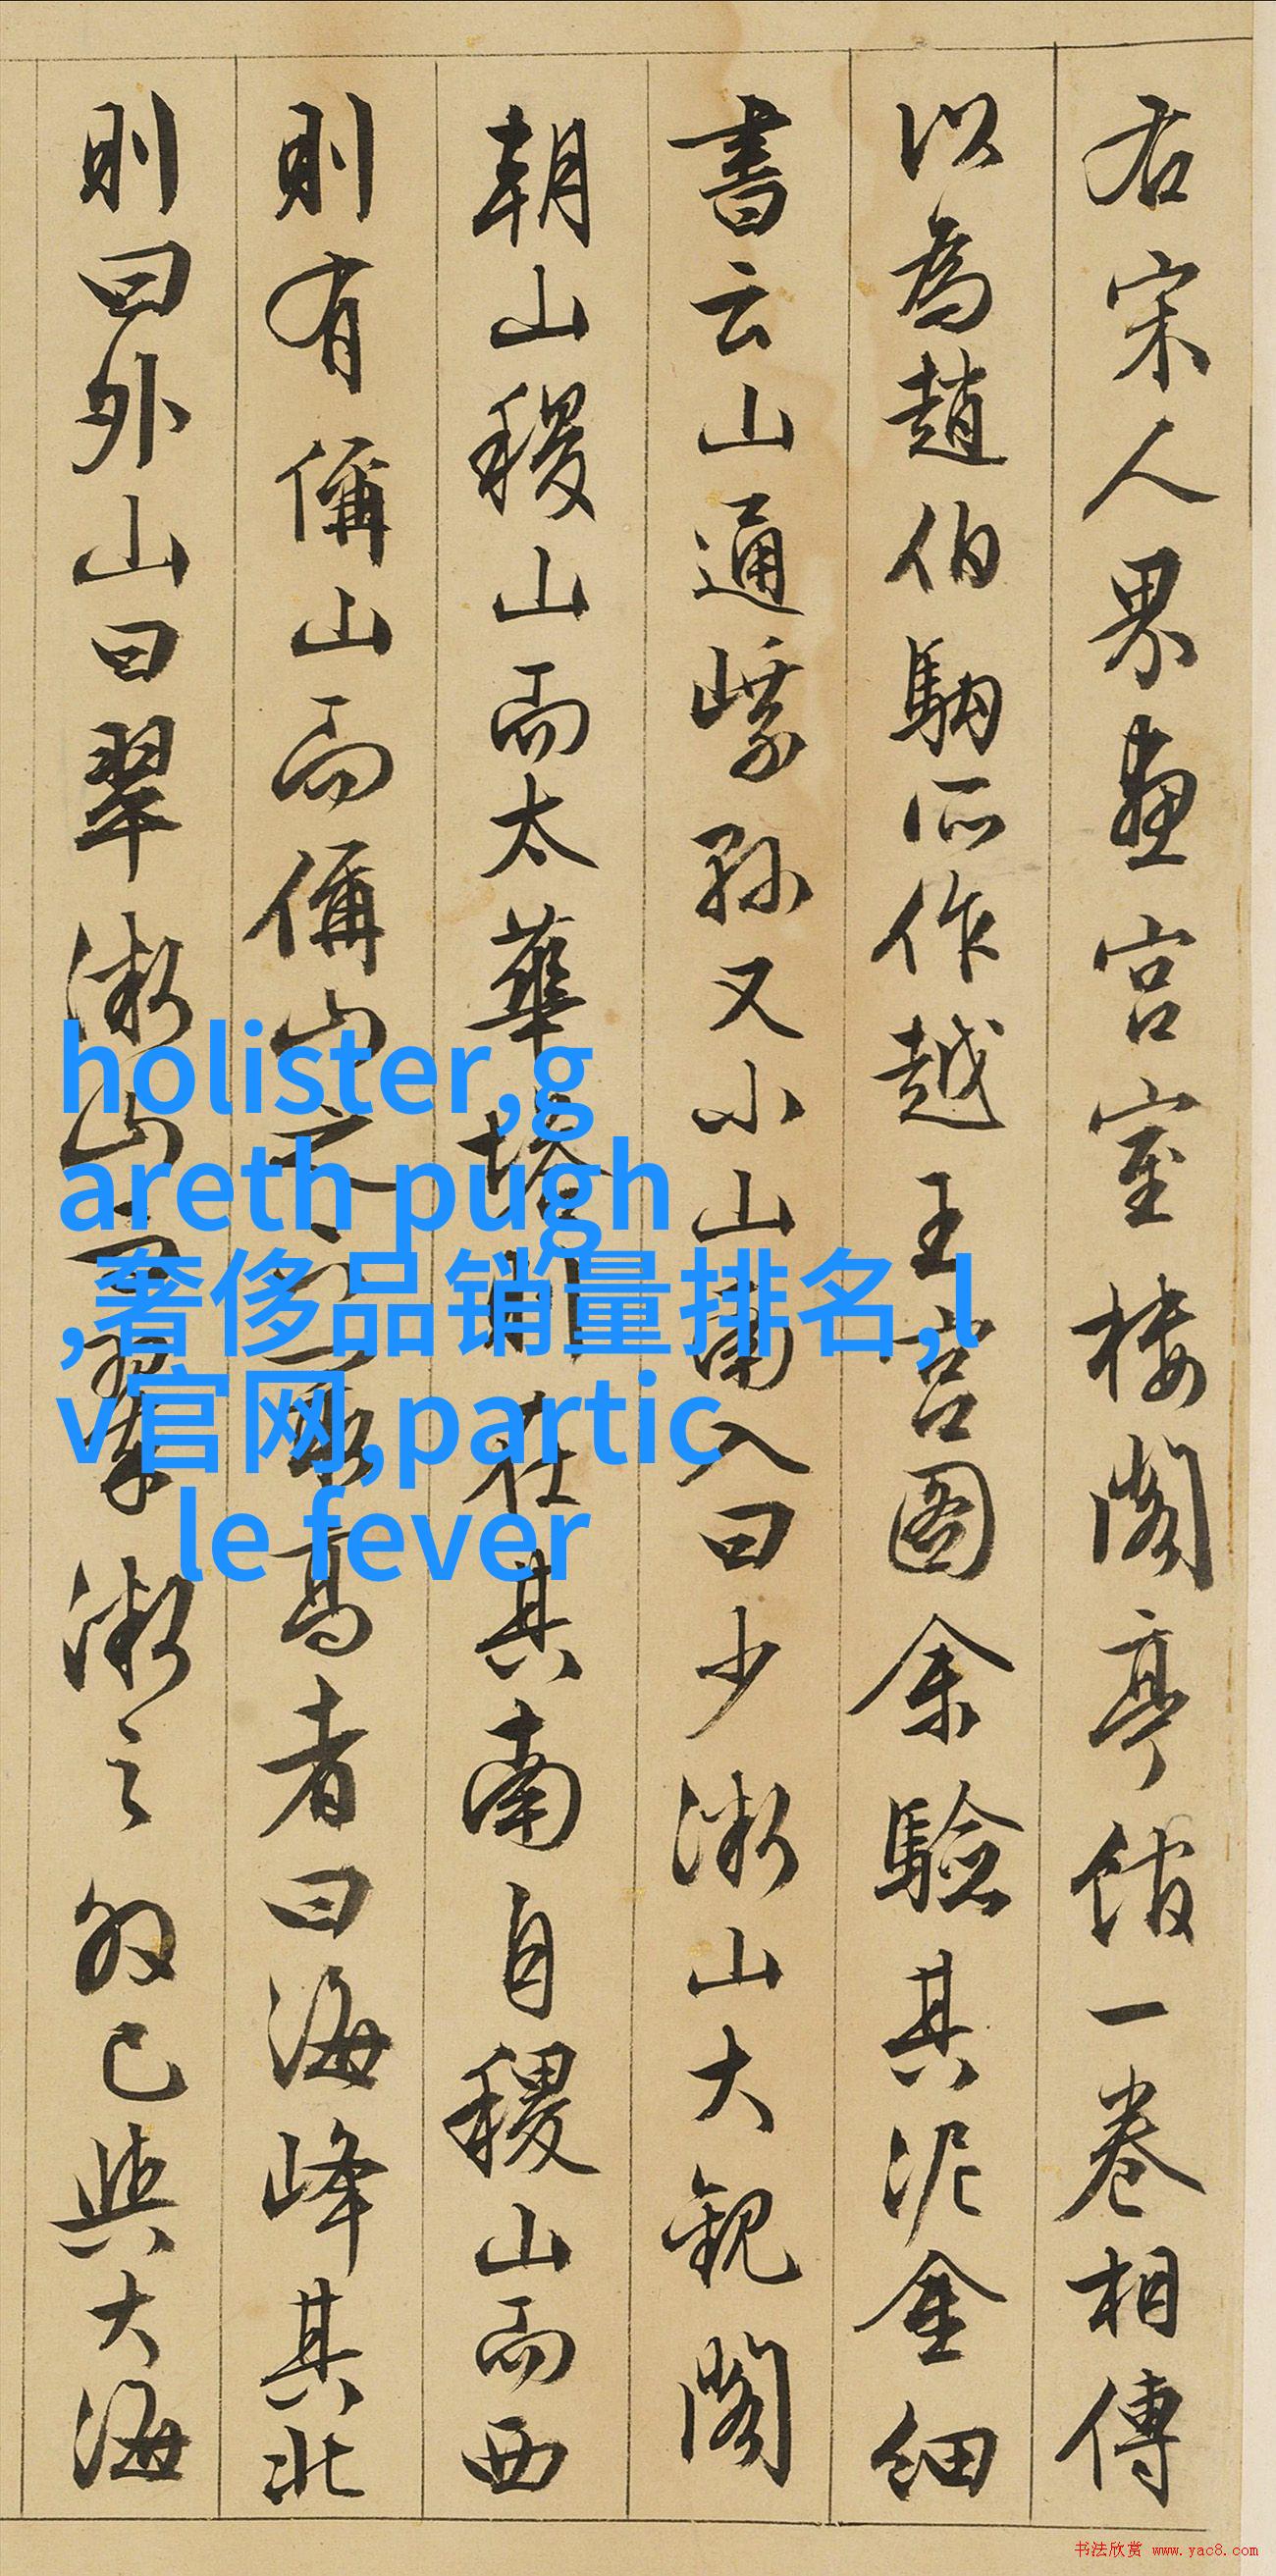 右宋人界畫宮室樓閣亭館一卷相傳
以為趙伯駒所作越王宮圖余驗其泥金細
書云山通又小山南入曰少微山大觀閣
朝山稷山而太華塔則在其南自稷山而西
則有偁山而偁山之最高者曰海峰其北
則曰外山曰翠微山翠微之外已與大海
holister,g
areth pugh
,奢侈品销量排名,l
v官网,partic
le fever
书法欣赏 www.yac8.com